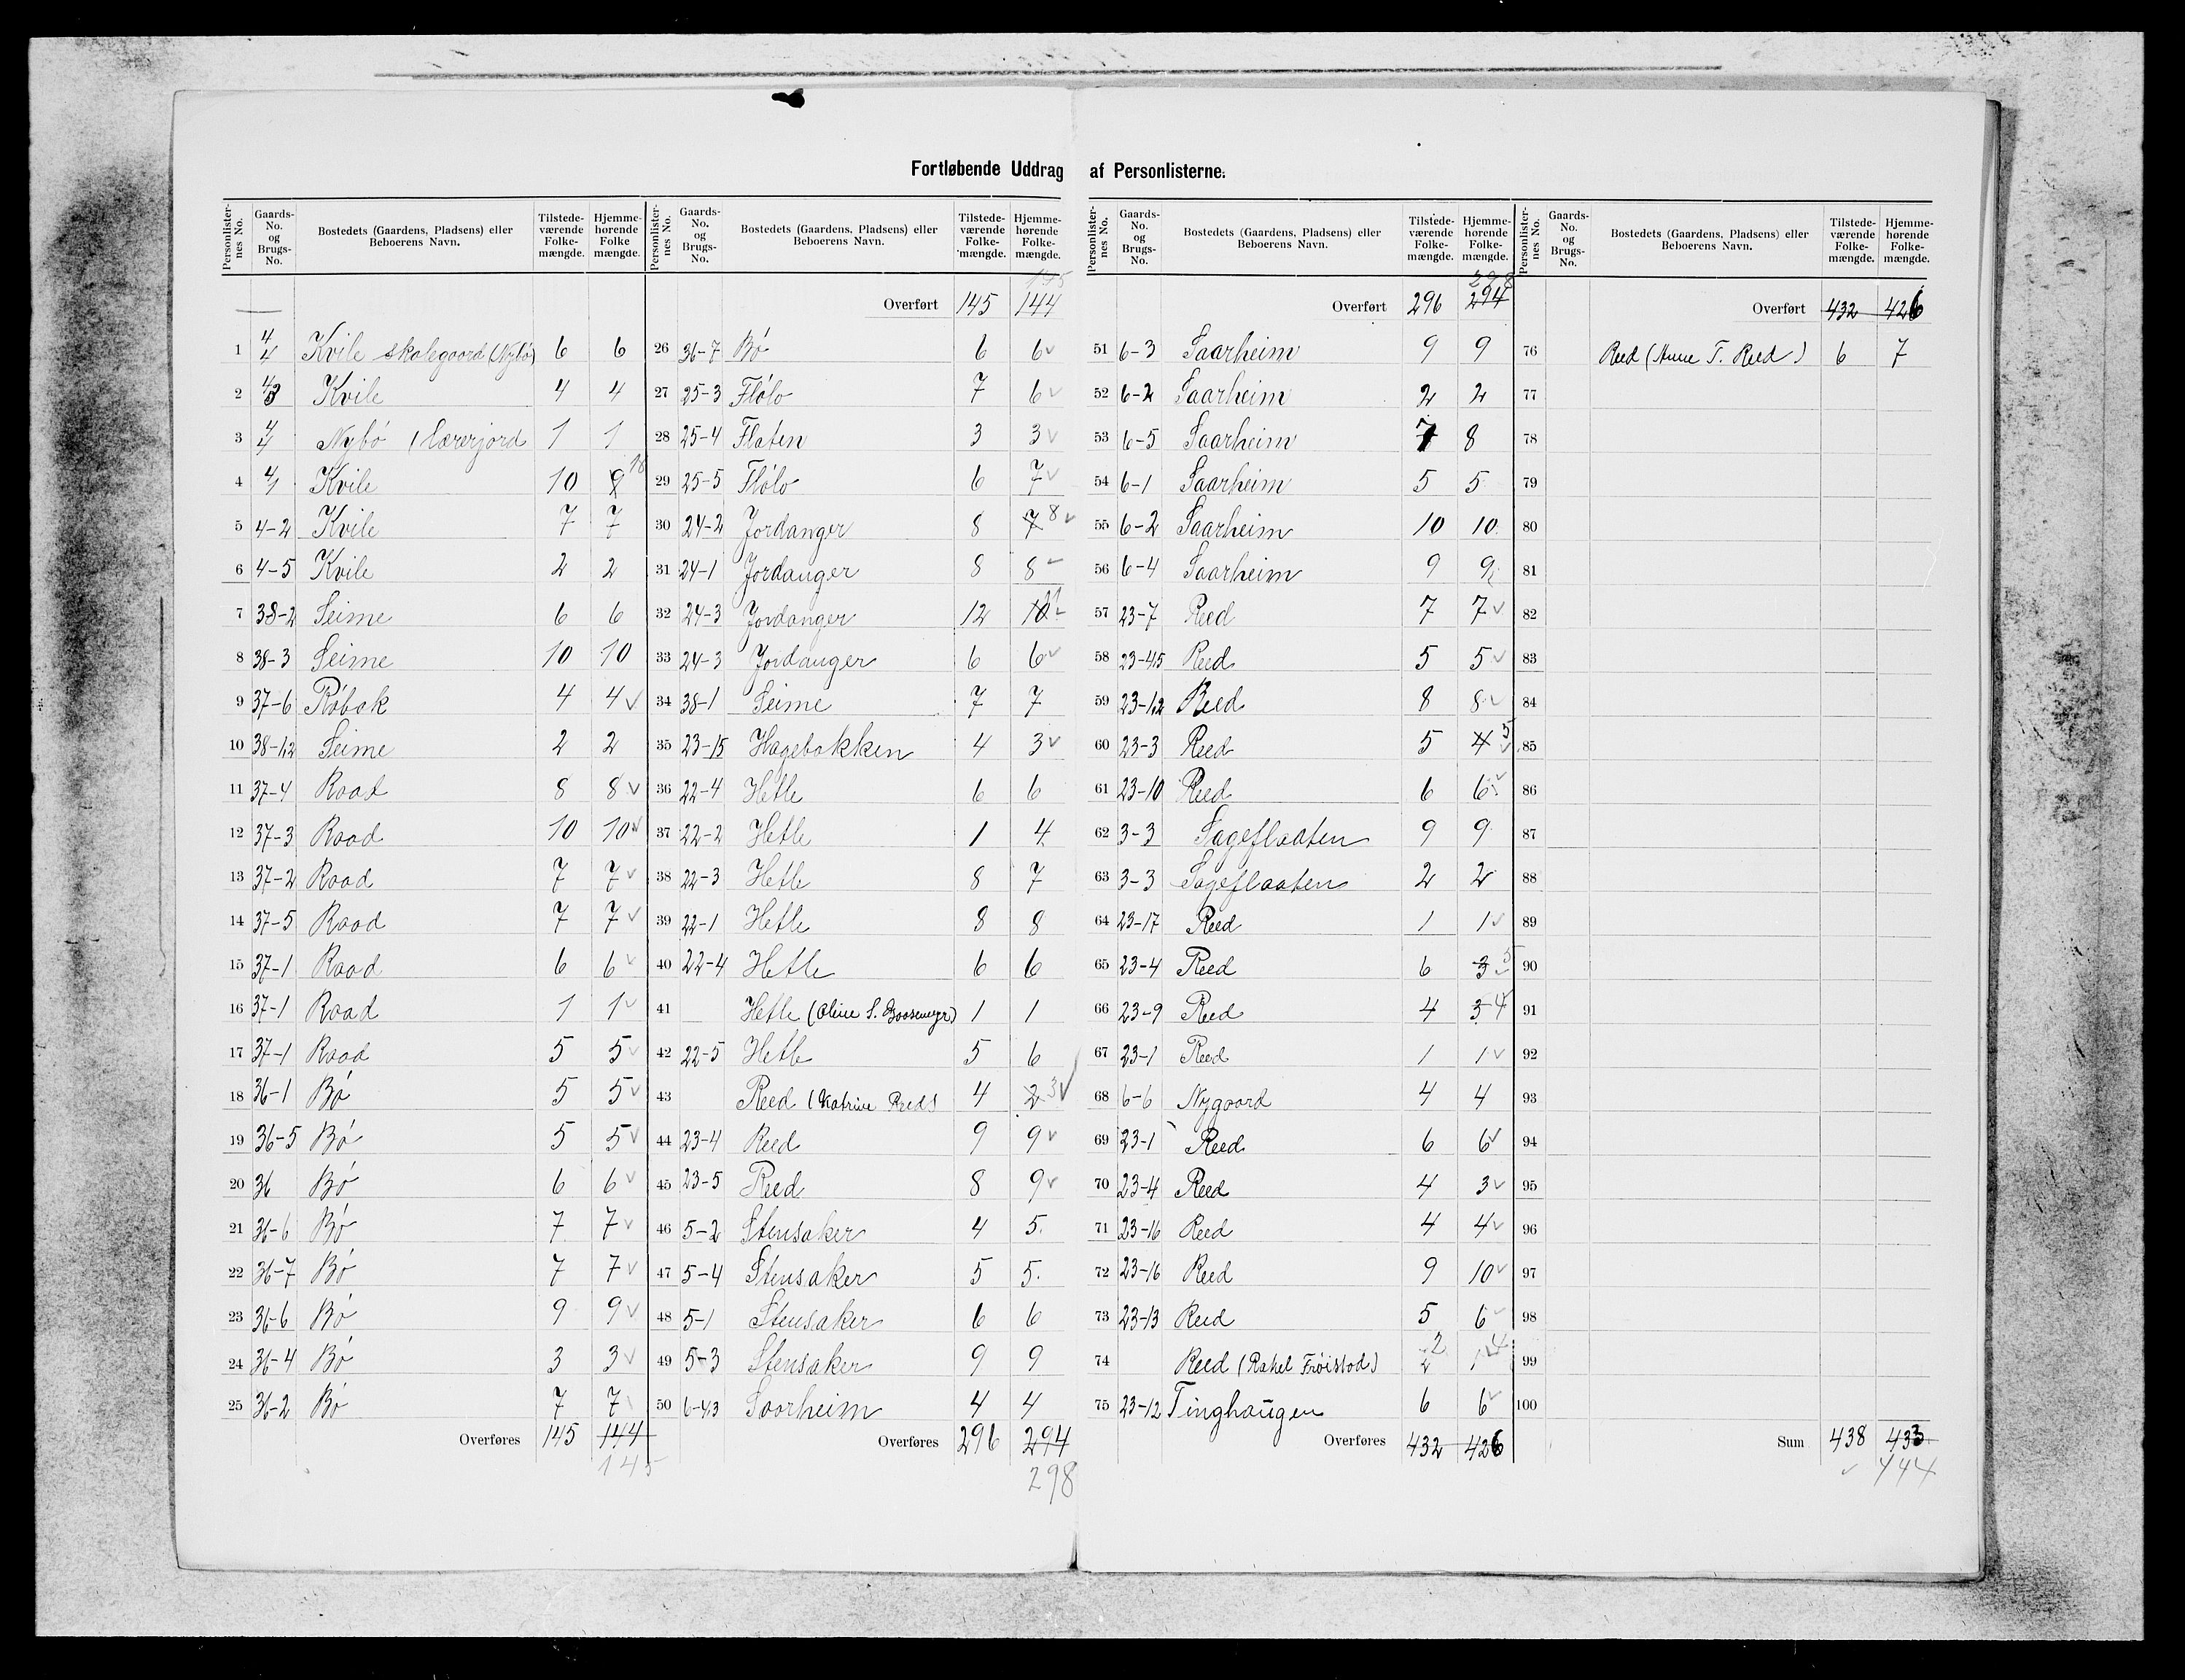 Fortløbende Uddrag af Personlisterne.
Personlister-nes No. Gaards-No. og Brugs-No. Bostedets (Gaardens, Pladsens) eller Beboerens Navn. Tilstede-værende Folke-mængde. Hjemme-hørende Folke mængde.
1 4/4 Kvile skolegaard (Nybø) 6 6
2 4/3 Kvile 4 4
3 4/4 Nybø (Lærerjord 1 1
4 4/1 Kvile 10 9 10
5 4-2 Kvile 7 7
6 4-5 Kvile 2 2
7 38-2 Seime 6 6
8 38-3 Seime 10 10
9 37-6 Røbak 4 4 ✓
10 38-1,2 Seime 2 2
11 37-4 Raad 8 8 ✓
12 37-3 Raad 10 10 ✓
13 37-2 Raad 7 7 ✓
14 37-5 Raad 7 7 ✓
15 37-1 Raad 6 6 ✓
16 37-1 Raad 1 1 ✓
17 37-1 Raad 5 5 ✓
18 36-1 Bø 5 5 ✓
19 36-5 Bø 5 5 ✓
20 36 Bø 6 6 ✓
21 36-6 Bø 7 7 ✓
22 36-7 Bø 7 7 ✓
23 36-6 Bø 9 9 ✓
24 36-4 Bø 3 3 ✓
25 36-2 Bø 7 7
Overføres 145 144
145
Personlister-nes No. Gaards-No. og Brugs-No. Bostedets (Gaardens, Pladsens) eller Beboerens Navn. Tilstede-værende Folke-mængde. Hjemme-hørende Folke-mængde.
145
Overført 145 144
26 36-7 Bø 6 6 ✓
27 25-3 Flølo 7 6 ✓
28 25-4 Flaten 3 3 ✓
29 25-5 Flølo 6 7 ✓
30 24-2 Jordanger 8 7 8 ✓
31 24-1 Jordanger 8 8 ✓
32 24-3 Jordanger 12 10
33 24-3 Jordanger 6 6 ✓
34 38-1 Seime 7 7
35 23-15 Hagebakken 4 3 ✓
36 22-4 Hetle 6 6
37 22-2 Hetle 1 4
38 22-3 Hetle 8 7
39 22-1 Hetle 8 8
40 22-4 Hetle 6 6
41 Hetle (Oline S. 1 1
42 22-5 Hetle 5 6
43 Reed (Katrine Reed) 4 2 3 ✓
44 23-4 Reed 9 9 ✓
45 23-5 Reed 8 9 ✓
46 5-2 Stensaker 4 5
47 5-4 Stensaker 5 5
48 5-1 Stensaker 6 6
49 5-3 Stensaker 9 9
50 6-4,3 Saarheim 4 4
Overføres 296 294
298
Personlister-nes No. Gaards-No. og Brugs-No. Bostedets (Gaardens, Pladsens) eller Beboerens Navn. Tilstede-værende Folke-mængde. Hjemme-hørende Folke-mængde.
298
Overført 296 294
51 6-3 Saarheim 9 9
52 6-2 Saarheim 2 2
53 6-5 Saarheim 7 8
54 6-1 Saarheim 5 5
55 6-2 Saarheim 10 10
56 6-4 Saarheim 9 9
57 23-7 Reed 7 7 ✓
58 23-4,15 Reed 5 5 ✓
59 23-1,2 Reed 8 8 ✓
60 23-3 Reed 5 4 5 ✓
61 23-10 Reed 6 6 ✓
62 3-3 Sageflaaten 9 9
63 3-3 Sageflaaten 2 2
64 23-17 Reed 1 1 ✓
65 23-4 Reed 6 3 5
66 23-9 Reed 4 3 4
67 23-1 Reed 1 1 ✓
68 6-6 Nygaard 4 4
69 23-1 Reed 6 6 ✓
70 23-4 Reed 4 3 ✓
71 23-16 Reed 4 4 ✓
72 23-16 Reed 9 10 ✓
73 23-13 Reed 5 6 ✓
74 Reed (Rakel Frøistad) 2 2 1 4
75 23-12 Tinghaugen 6 6 ✓
Overføres 432 426
Personlister-nes No. Gaards-No. og Brugs-No. Bostedets (Gaardens, Pladsens) eller Beboerens Navn. Tilstede-værende Folke-mængde. Hjemme-hørende Folke-mængde.
Overført 432 426
76 Reed (Anne T. Reed) 6 7
77
78
79
80
81
82
83
84
85
86
87
88
89
90
91
92
93
94
95
96
97
98
99
100
Sum 438 433
✓ 444